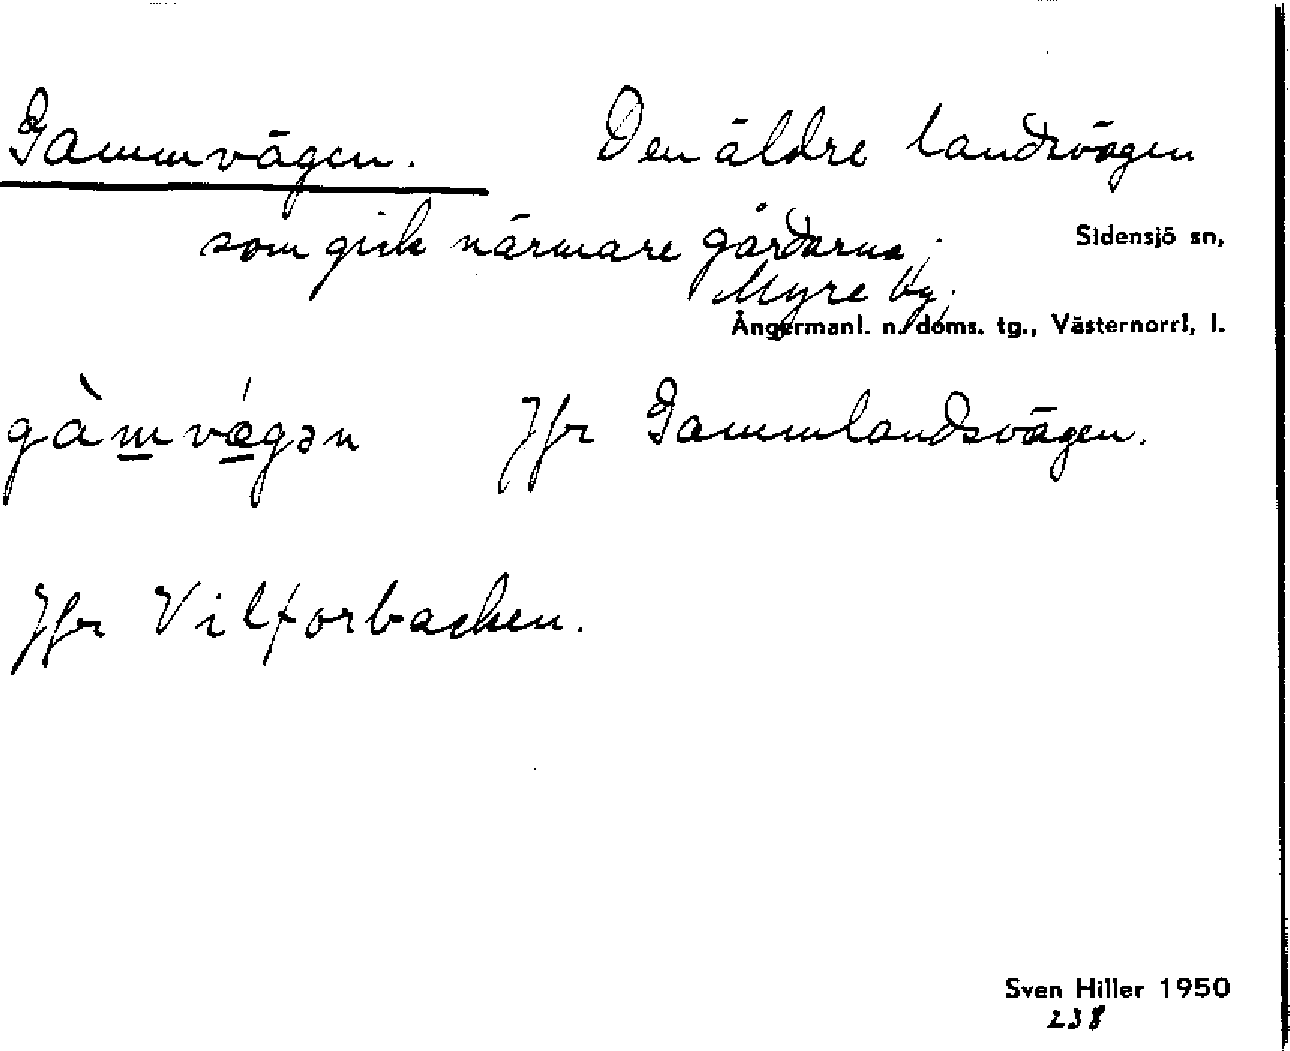 Gammvägen. Den äldre landsvägen
som gick närmare gårdarna; Sidensjö sn,
Myre by.
Ångermanl. n. doms. tg., Västernorrl. l.
gàmvǽgən Jfr Gammlandsvägen.
Jfr Vilforbacken.
Sven Hiller 1950
238